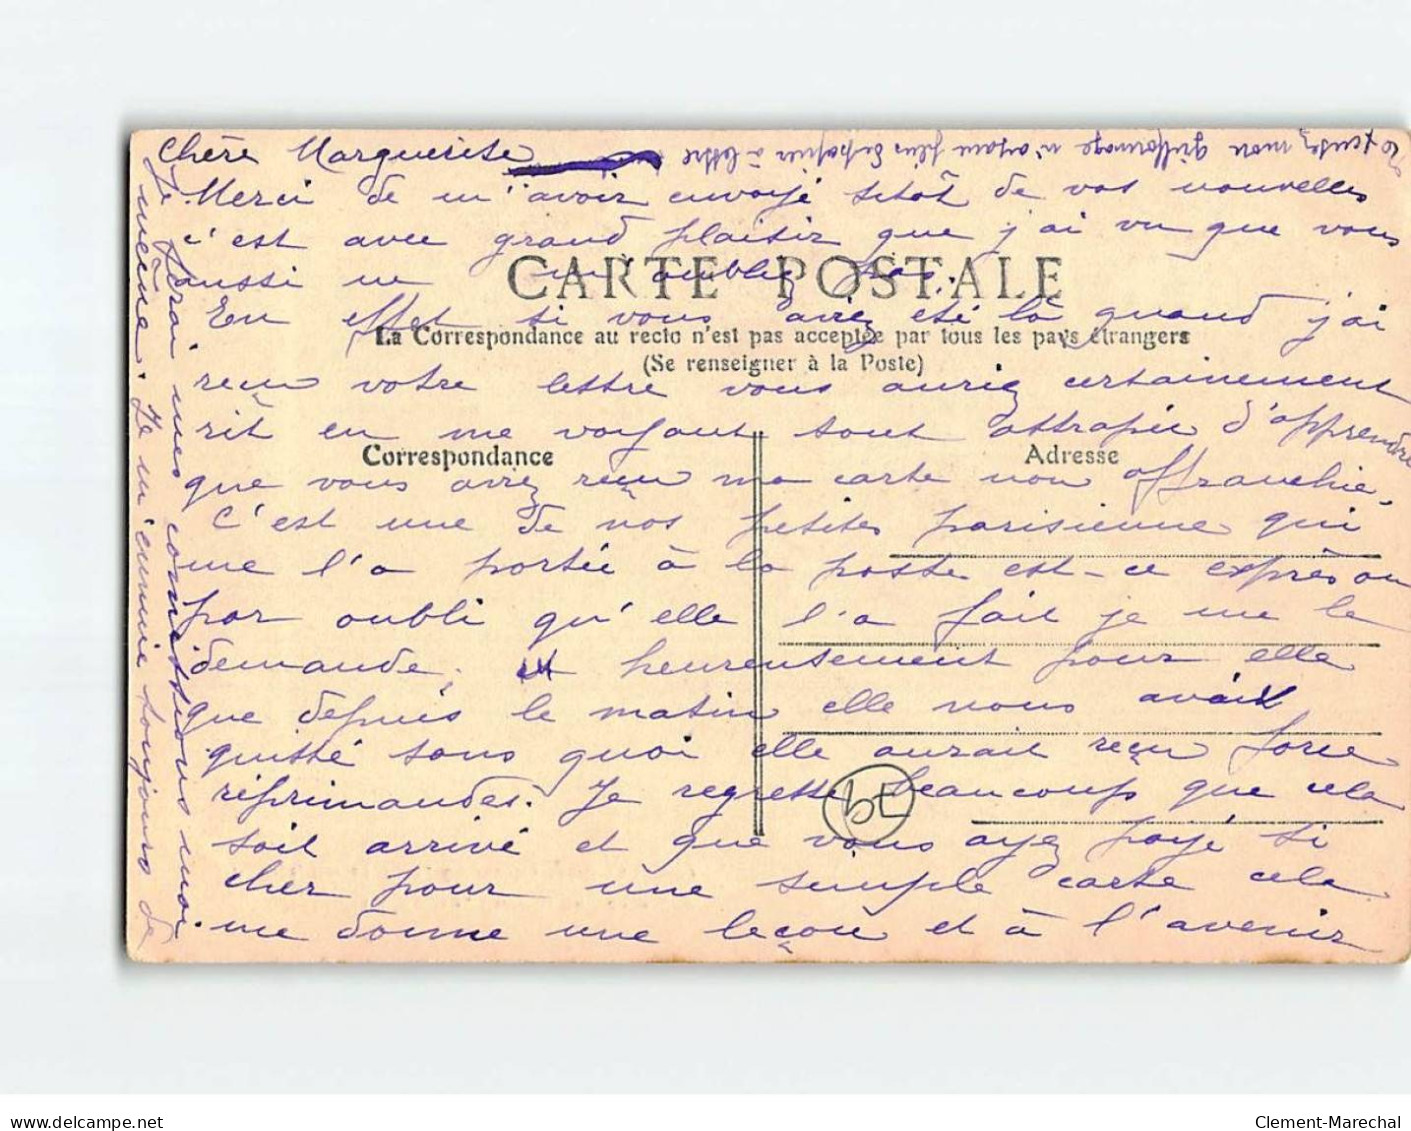 Chère Marguerite
Merci de m'avoir envoyé sitôt de vos nouvelles
c'est avec grand plaisir que j'ai vu que vous
aussi ne m'oubliez pas.
CARTE POSTALE
En effet si vous aviez été là quand j'ai
La Correspondance au recto n'est pas acceptée par tous les pays étrangers
(Se renseigner à la Poste)
reçu votre lettre vous auriez certainement
rit en me voyant tout attrapée d'apprendre
Correspondance
Adresse
que vous avez reçu ma carte non affranchie,
C'est une de nos petites parisienne qui
me l'a portée à la poste est-ce exprès ou
par oubli qu'elle l'a fait je me le
demande, heureusement pour elle
que depuis le matin elle nous avait
quitté sans quoi elle aurait reçu force
réprimandes. Je regrette beaucoup que cela
soit arrivé et que vous ayez payé si
cher pour une simple carte cela
me donne une leçon et à l'avenir
je ferai mes comissions moi
même. Je m'ennuie toujours de
excusez mon griffonnage n'ayant plus de papier à lettre
Clement-Marechal
www.delcampe.net